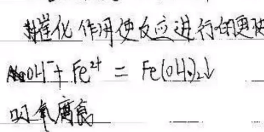 催化作用使反应进行的更快
OH⁻ + Fe²⁺ = Fe(OH)₂↓
吸氧腐蚀